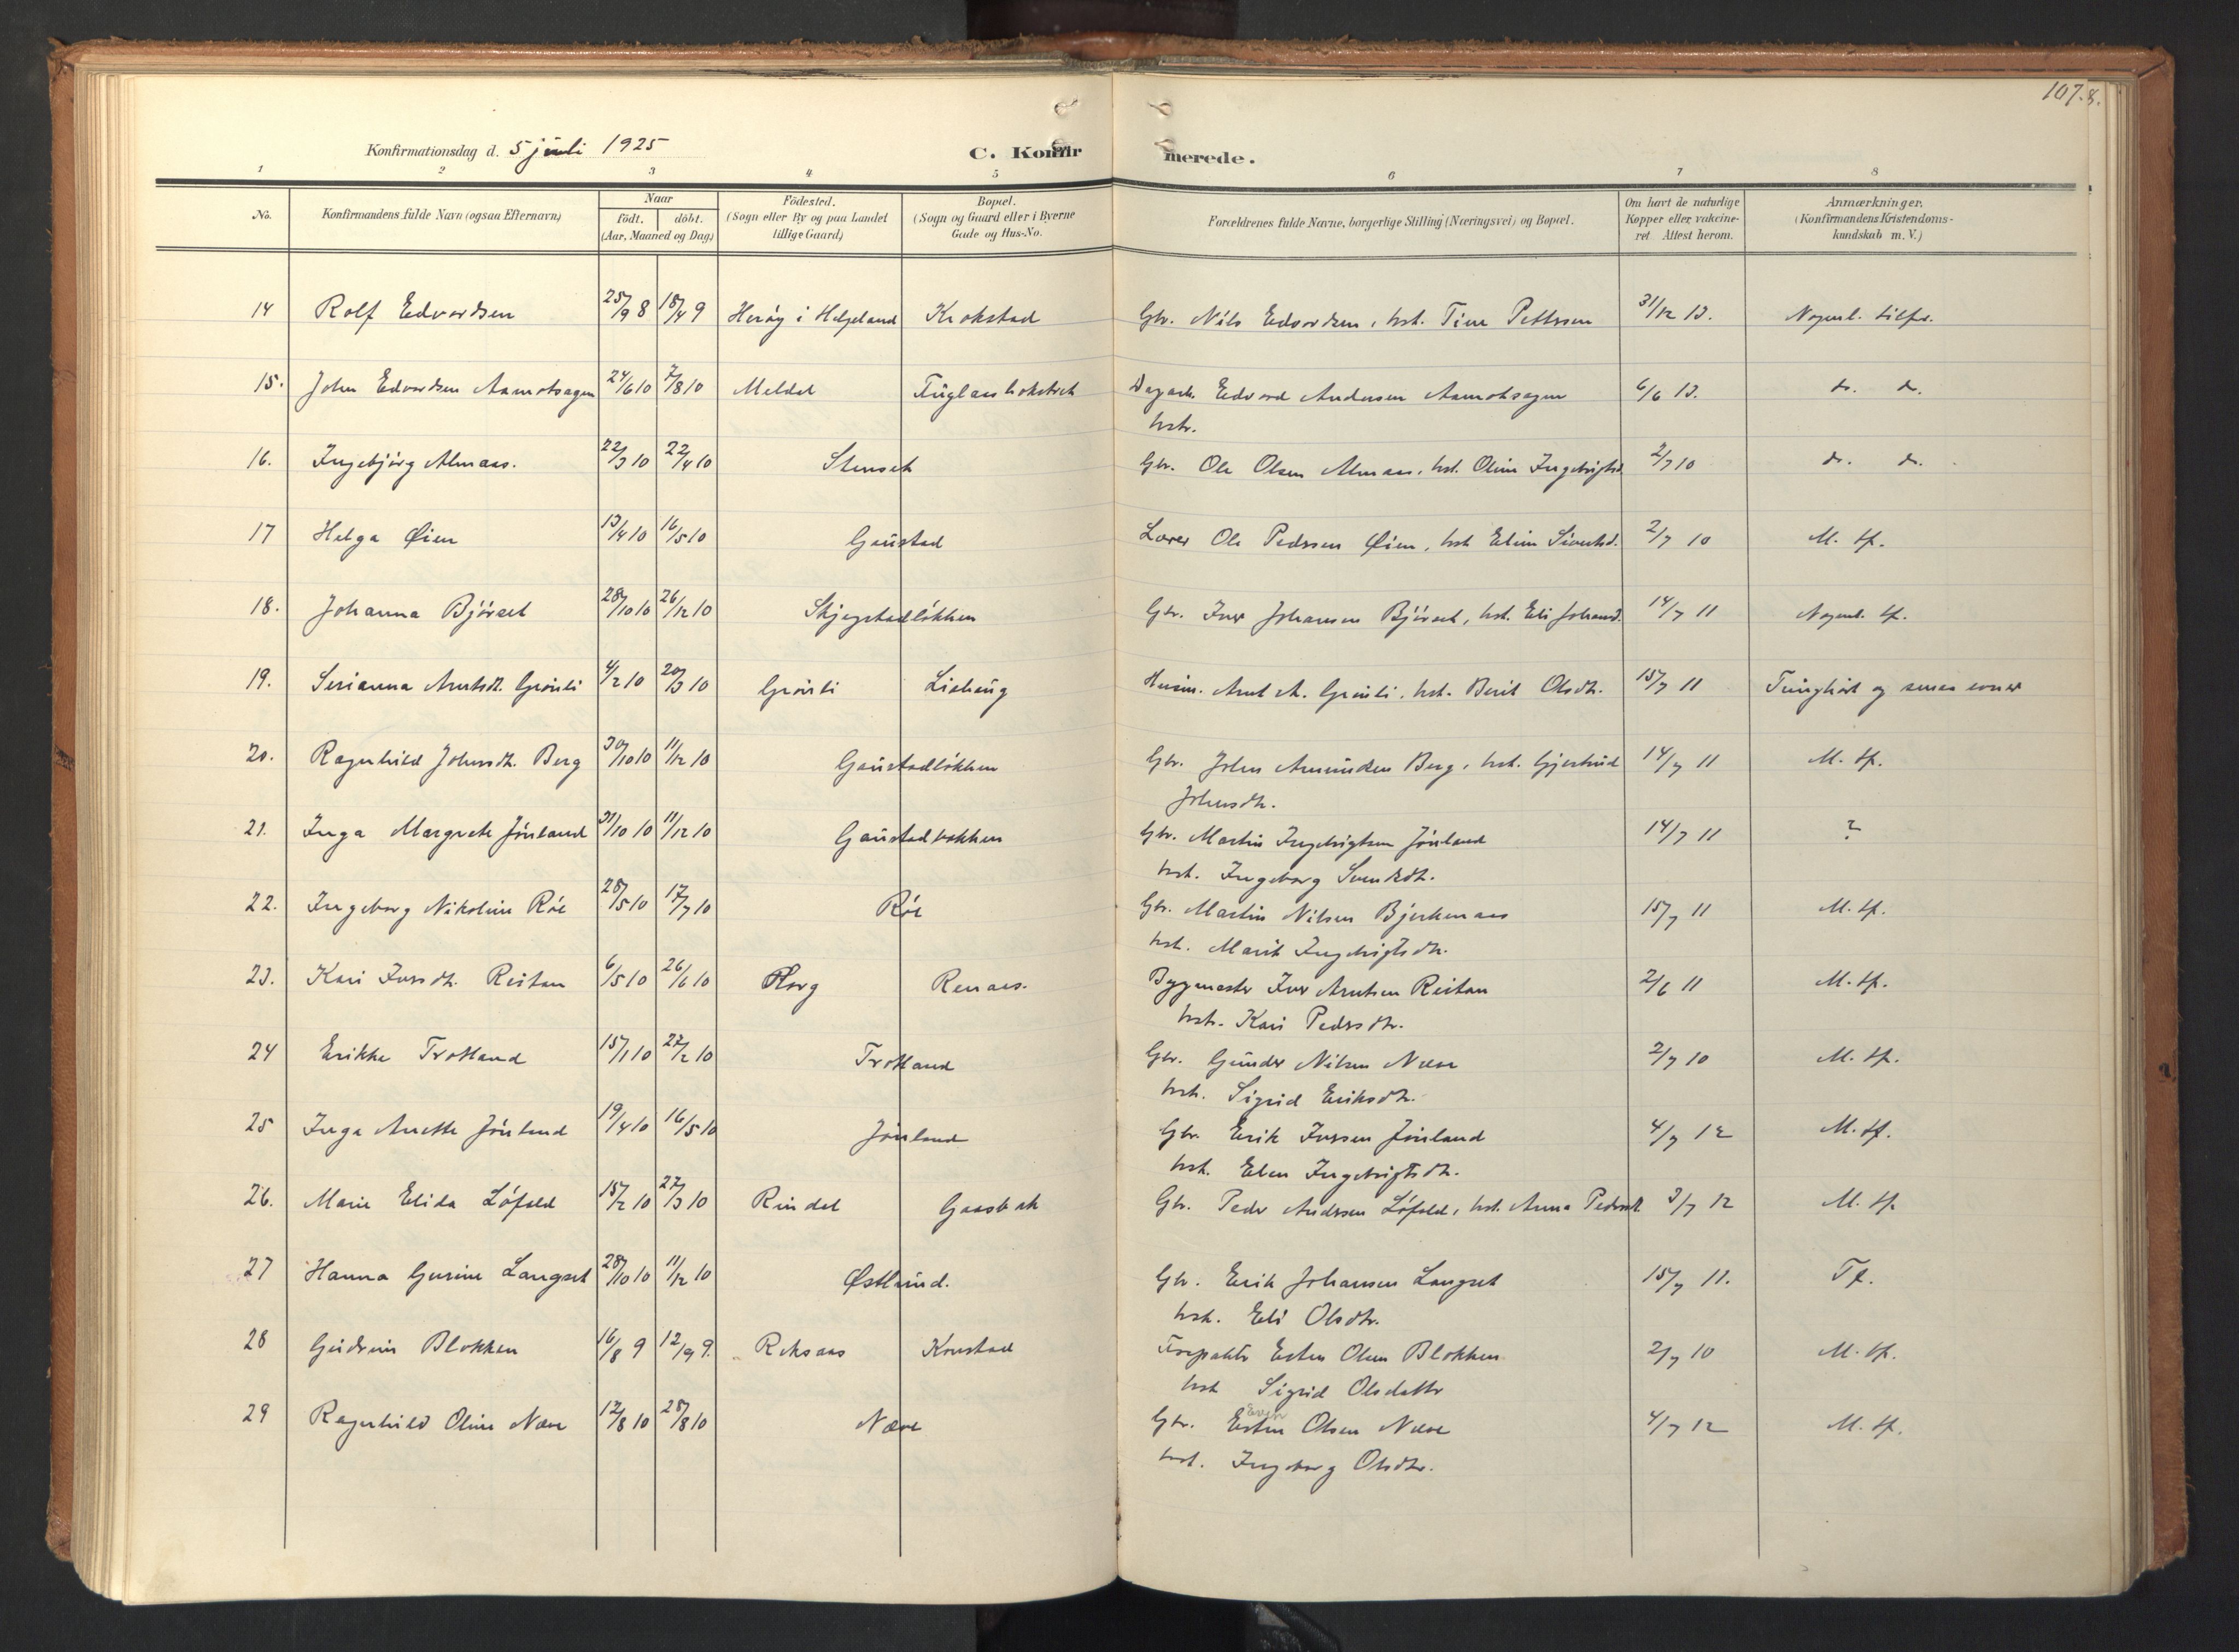 107.8.
Konfirmationsdag d. 5 juli 1925
C. Konfirmerede.
1 2 3 4 5 6 7 8
No. Konfirmandens fulde Navn (ogsaa Efternavn) Naar födt. döbt. (Aar, Maaned og Dag) Födested. (Sogn eller By og paa Landet tillige Gaard) Bopæl. (Sogn og Gaard eller i Byerne Gade og Hus-No. Forældrenes fulde Navne, borgerlige Stilling (Næringsvei) og Bopæl. Om havt de naturlige Kopper eller vakcineret Attest herom. Anmærkninger. (Konfirmandens Kristendomskundskab m. V.)
14 Rolf Edvardsen 25/9 8 18/4 9 Heröy i Helgeland Krokstad Gbr. Nils Edvardsen, hst. Tine Petterson 31/12 13. Nogenl. tilfr.
15. John Edvardsen Aamotsagen 24/6 10 7/8 10 Meldal Fuglaas Edvard Andersen Aamotsagen 6/6 13. do. do.
hstr.
16. Ingebjörg Almaas. 22/3 10 22/4 10 Stenset Gbr. Ole Olsen Almaas, hst. Oline Ingebrigtsd. 2/7 10 do. do.
17 Helga Øien 13/4 10 16/5 10 Gaustad Lærer Ole Pedersen Øien, hst. Elina Sivertsd. 2/7 10 M. tf.
18. Johanna Björset 28/10 10 26/12 10 Skjegstadlökken Gbr. Iver Johansen Björset, hst. Eli Johansd. 14/7 11 Nogenl. tf.
19. Serianna Arntsdt. Grönli 4/2 10 20/3 10 Grönli Liehaug Husm. Arnt A. Grönli, hst. Berit Olsdtr. 15/7 11 Tunghört og smaa evner
20. Ragnhild Johnsdt. Berg 30/10 10 11/12 10 Gaustadlökken Gbr. John Amundsen Berg, hst. Gjertrud 14/7 11 M. tf.
Johnsdtr.
21. Inga Margrete Jönland 31/10 10 11/12 10 Gaustadbakken Gbr. Martin Ingebrigtsen Jönland 14/7 11 ?
hst. Ingeborg Svendsdtr.
22. Ingeborg Nikoline Röe 28/5 10 17/7 10 Röe Gbr. Martin Nilsen Bjerkenaas 15/7 11 M. tf.
hst. Marit Ingebrigtsdtr.
23. Kari Iversdtr. Reitan 6/5 10 26/6 10 Horg Renaas. Byggmester Iver Arntsen Reitan 2/6 11 M. tf.
hstr. Kari Pedersdtr.
24 Erikka Trotland 15/1 10 27/2 10 Trotland Gbr. Gunder Nilsen Næve 2/7 10 M. tf.
hst. Sigrid Eriksdtr.
25 Inga Anette Jönland 19/4 10 16/5 10 Jönland Gbr. Erik Iversen Jönland 4/7 12 M. tf.
hst. Elen Ingebrigtsdtr.
26. Marie Elida Löfald 15/2 10 27/3 10 Rindal Gaasbak Gbr. Peder Andersen Löfald, hst. Anna Pedersdt. 3/7 12 M. tf.
27 Hanna Gurine Langset 28/10 10 11/12 10 Østlund. Gbr. Erik Johansen Langset 15/7 11. Tf.
hst. Eli Olsdtr.
28 Gudrun Blokken 16/8 9 12/9 9. Reksaas Korstad Forpakter Esten Olsen Blokken 2/7 10 M. tf.
hst Sigrid Olsdatter
29 Ragnhild Oline Næve 12/8 10 28/8 10 Næve Gbr. Esten Olsen Næve 4/7 12 M. tf.
Even
hst. Ingeborg Olsdtr.